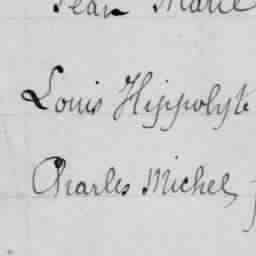 Jean Marie
Louis Hippolyte
Charles Michel